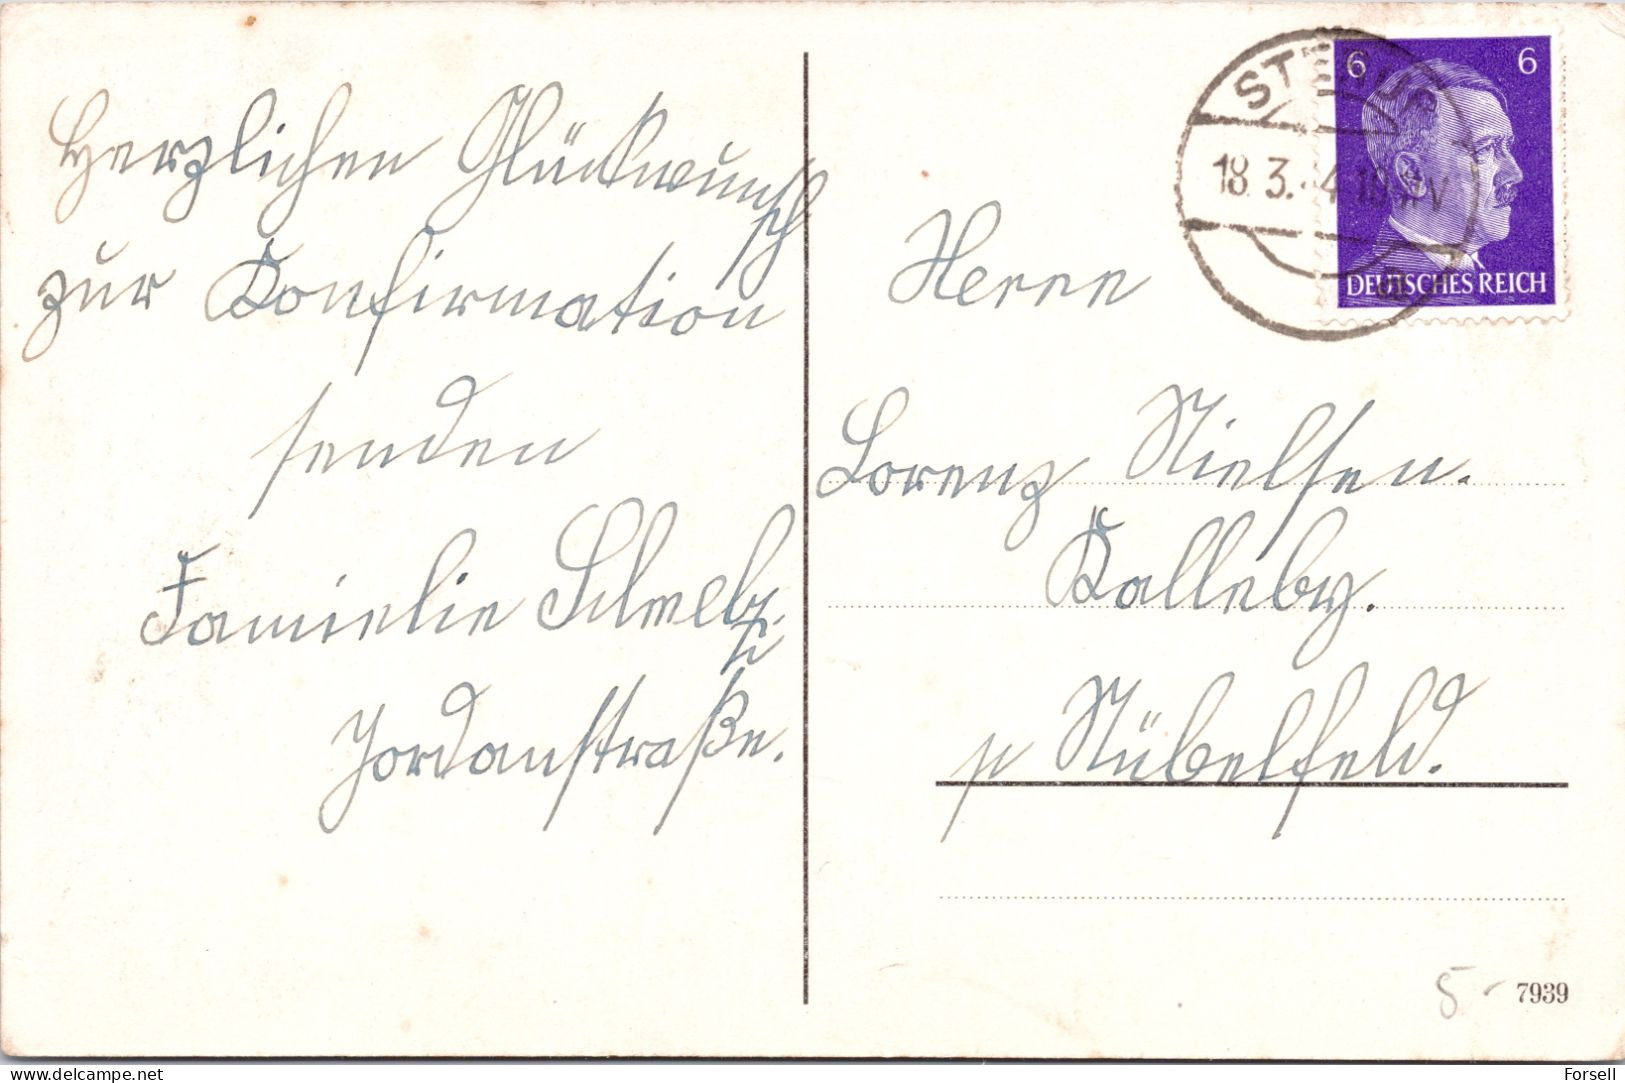 Herzlichen Glückwunsch
zur Konfirmation
senden
Familie
Jordanstraße.
6 6
DEUTSCHES REICH
18.3.
Herrn
Lorenz Nielsen.
Kalleby.
p Nübelfeld.
5-
7939
delcampe.net
Forsell